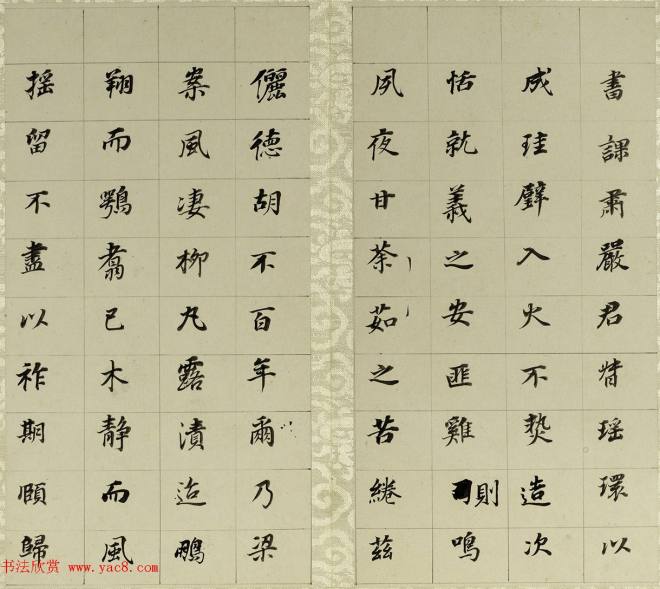 書課肅嚴君瑤環以
成珪璧入火不爇造次
恬就義之安匪雞則鳴
夙夜甘荼茹之苦綣茲
儷德胡不百年爾乃梁
案風凄柳丸露漬迨鵬
翔而鶚翥已木靜而風
搖留不盡以祚期頤歸
书法欣赏 www.yac8.com